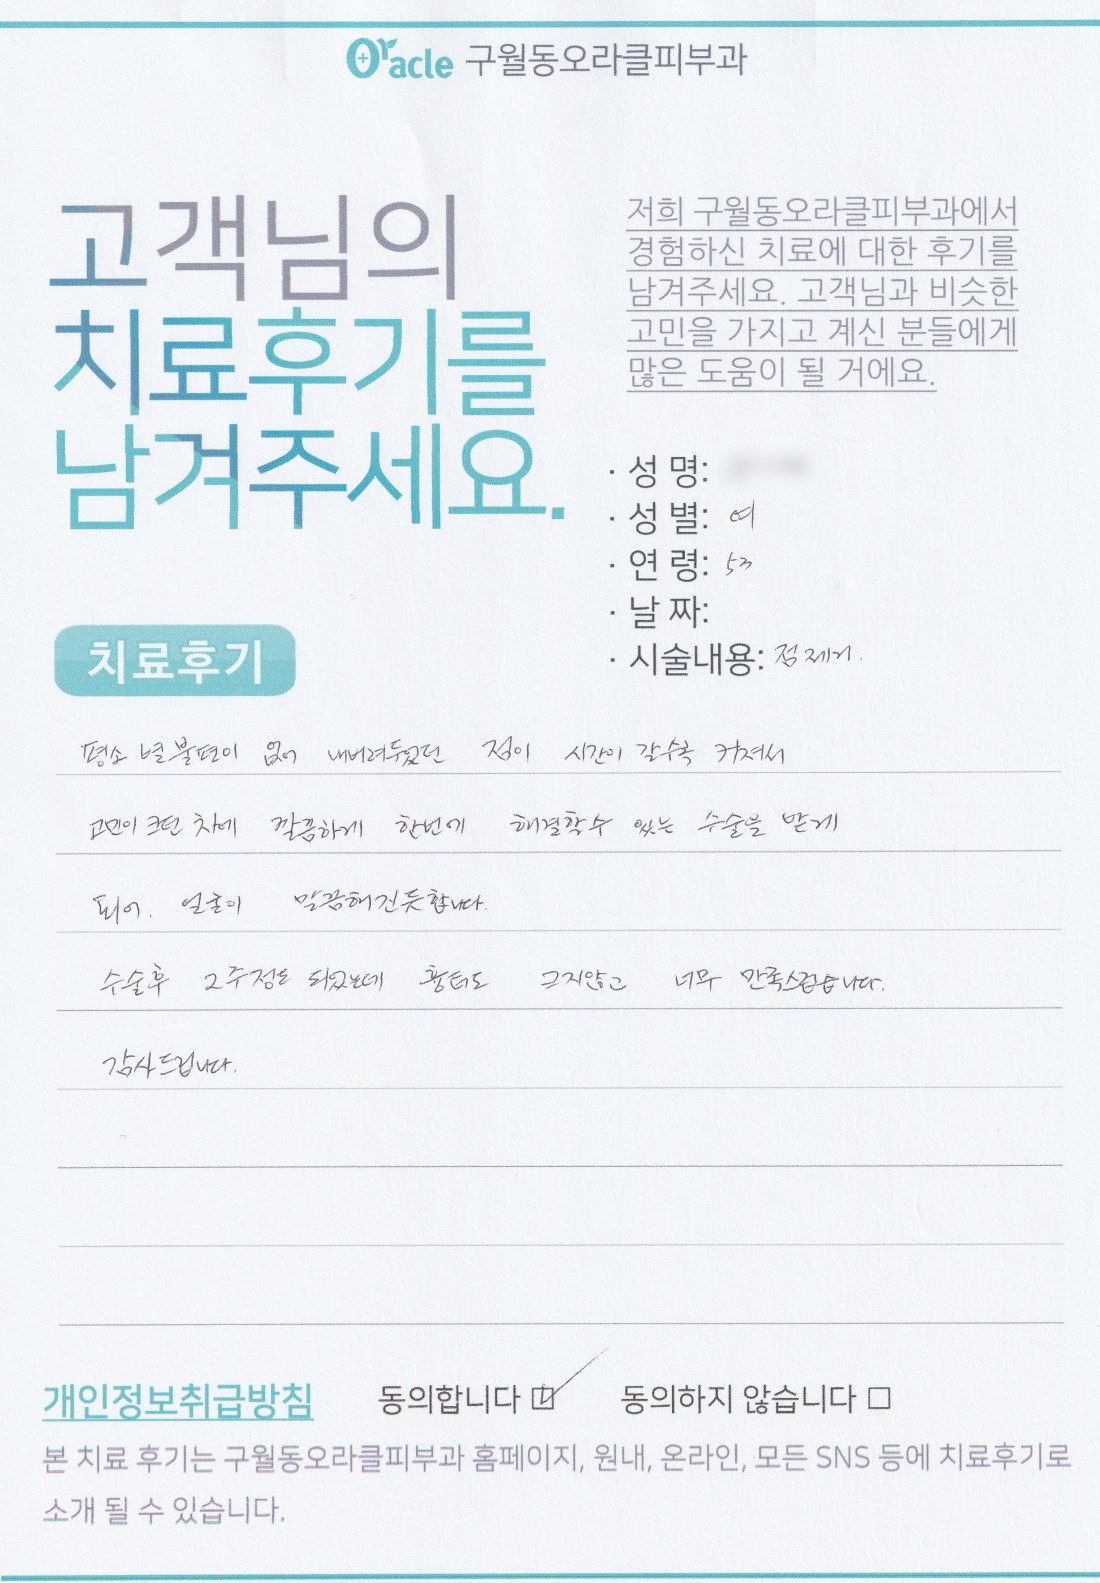 Oracle 구월동오라클피부과
고객님의
치료후기를
남겨주세요.
저희 구월동오라클피부과에서
경험하신 치료에 대한 후기를
남겨주세요. 고객님과 비슷한
고민을 가지고 계신 분들에게
많은 도움이 될 거에요.
· 성 명:
· 성 별: 여
· 연 령: 53
· 날 짜:
· 시술내용: 점제거.
치료후기
평소 별 불편이 없어 내버려두었던 점이 시간이 갈수록 커져서
고민이 크던 차에 깔끔하게 한번에 해결할수 있는 수술을 받게
되어. 얼굴이 말끔해진듯합니다.
수술후 2주정도 되었는데 흉터도 크지않고 너무 만족스럽습니다.
감사드립니다.
개인정보취급방침 동의합니다 동의하지 않습니다
본 치료 후기는 구월동오라클피부과 홈페이지, 원내, 온라인, 모든 SNS 등에 치료후기로
소개 될 수 있습니다.